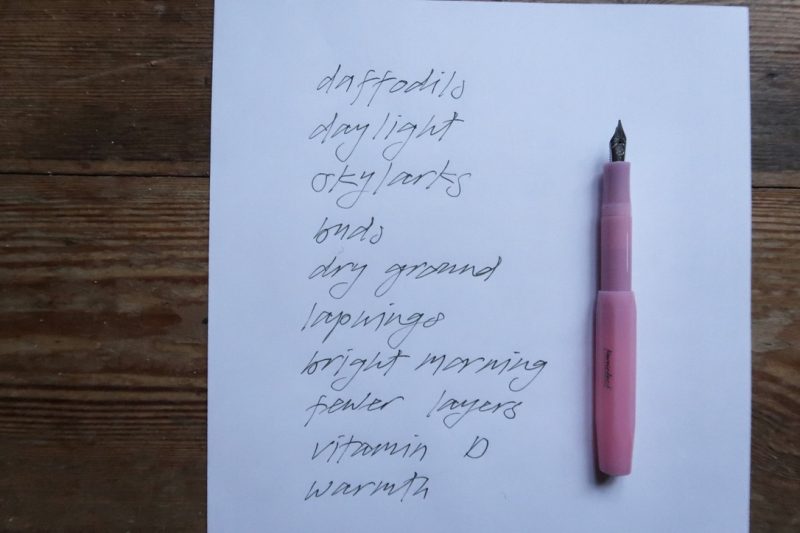 daffodils
daylight
skylarks
buds
dry ground
lapwings
bright morning
fewer layers
vitamin D
warmth
Kaweco